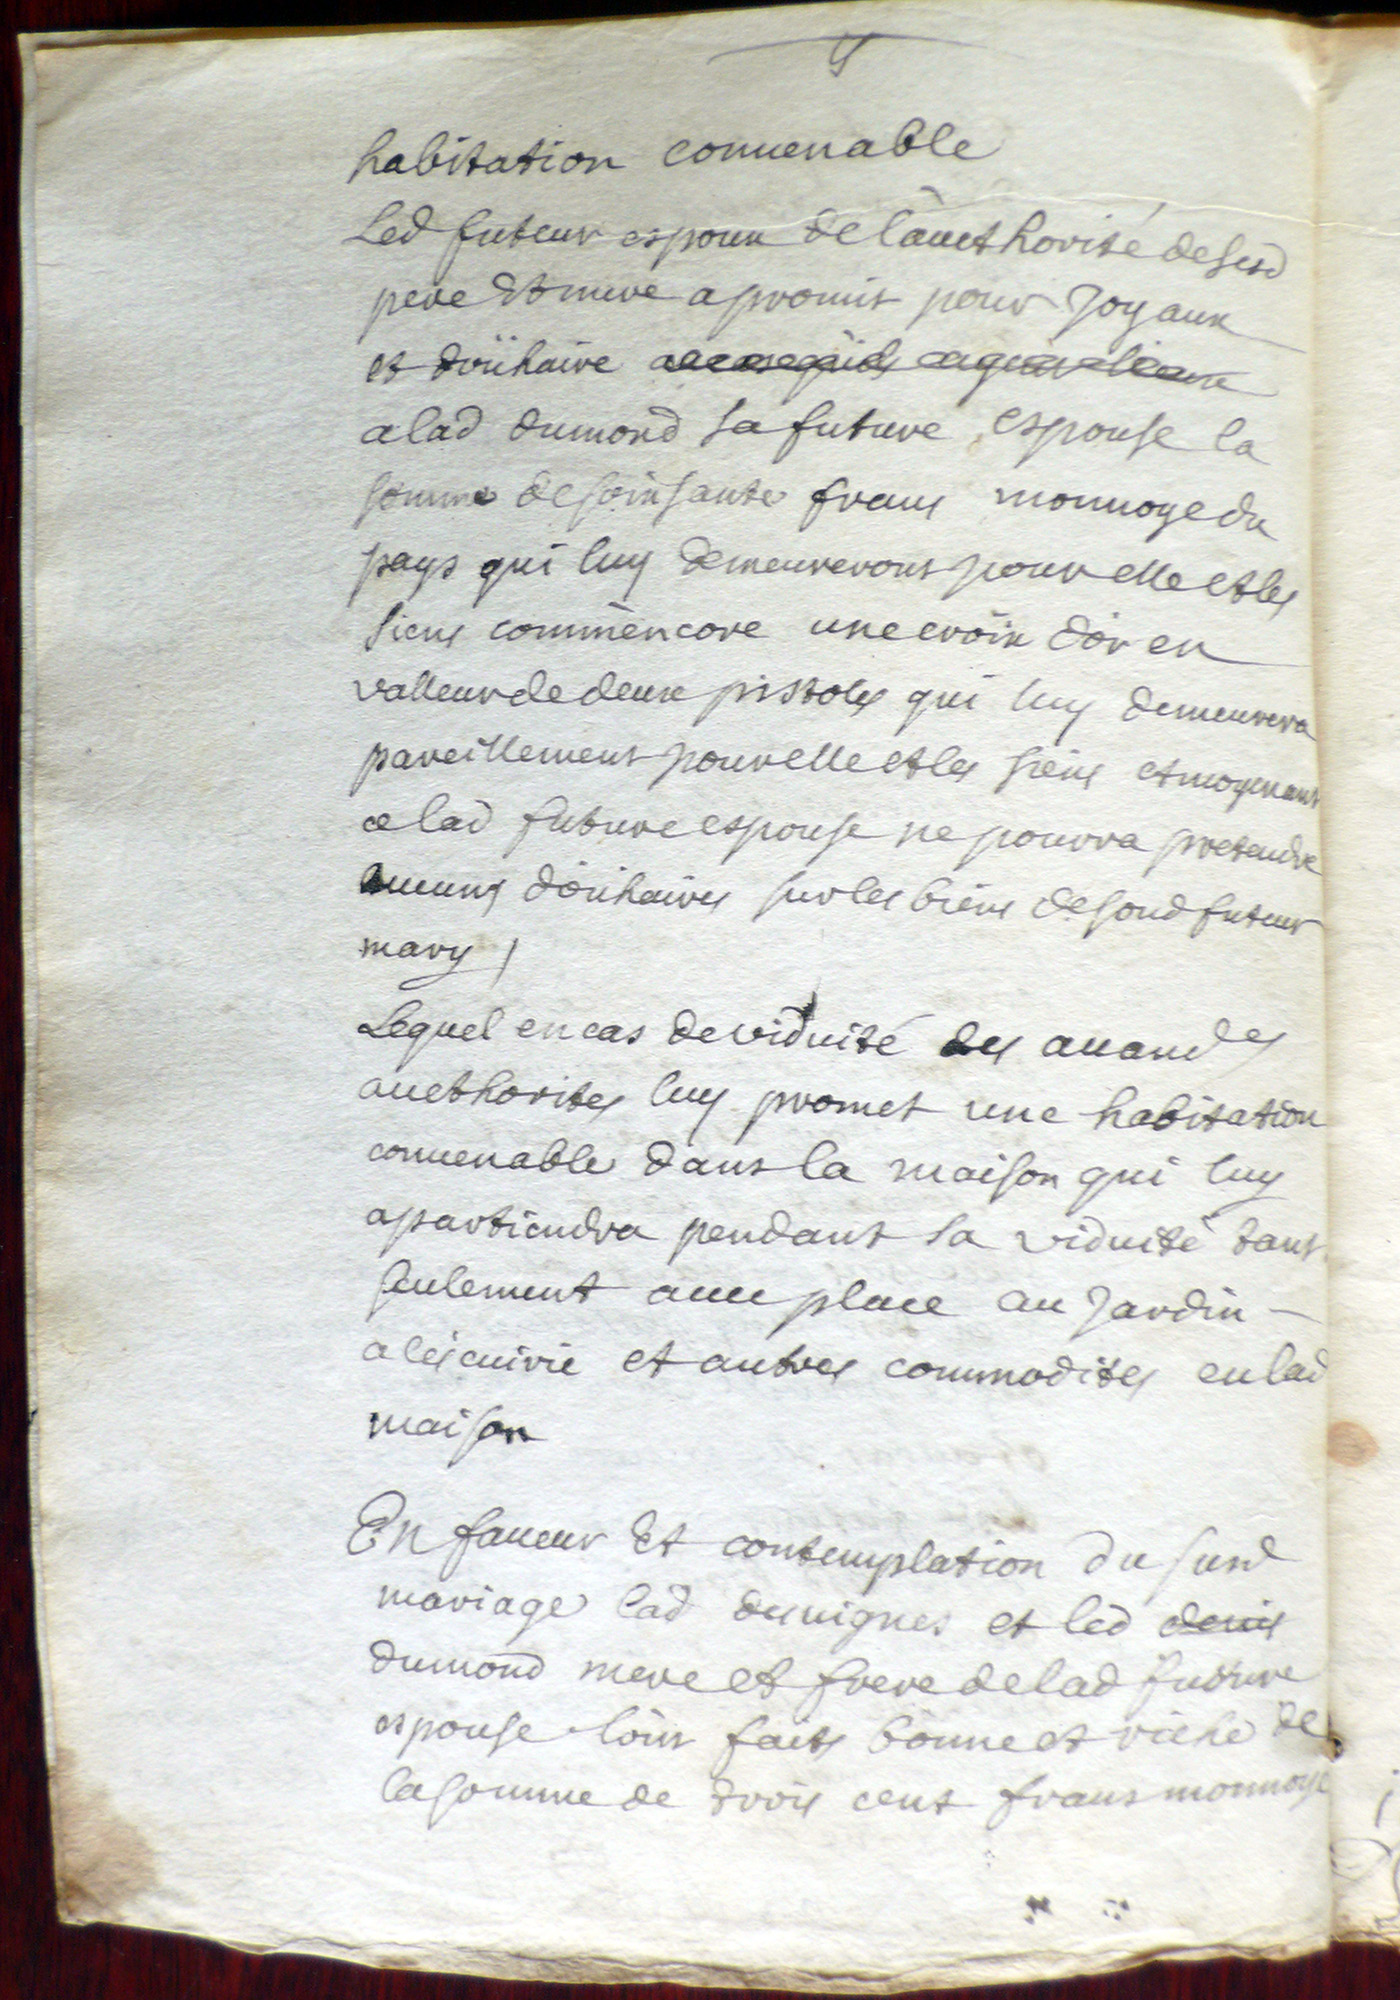 habitation conuenable
Led futeur espoux de l'aucthorité desesd
pere et mere a promis pour joyaux
et doühaire
a lad dumond sa future espouse la
somme de soixsante frans monnoye du
pays qui luy demeureront pour elle et les
siens comm'encore une croix d'or en
valleur de deux pistoles qui luy demeurera
pareillement pour elle et les siens et moyenant
ce lad future espouse ne pourra pretendre
aucuns doühaires sur les biens desond futeur
mary /
Lequel en cas de viduité des auand
aucthorites luy promet une habitation
conuenable dans la maison qui luy
apartiendra pendant sa viduité tant
seulement auec place au jardin -
a l'escuirie et autres commodites en lad
maison
En faueur et contemplation du susd
mariage lad deuignes et led denis
dumond mere et frere de lad future
espouse l'ont faits bonne et riche de
la somme de trois cent frans monnoye